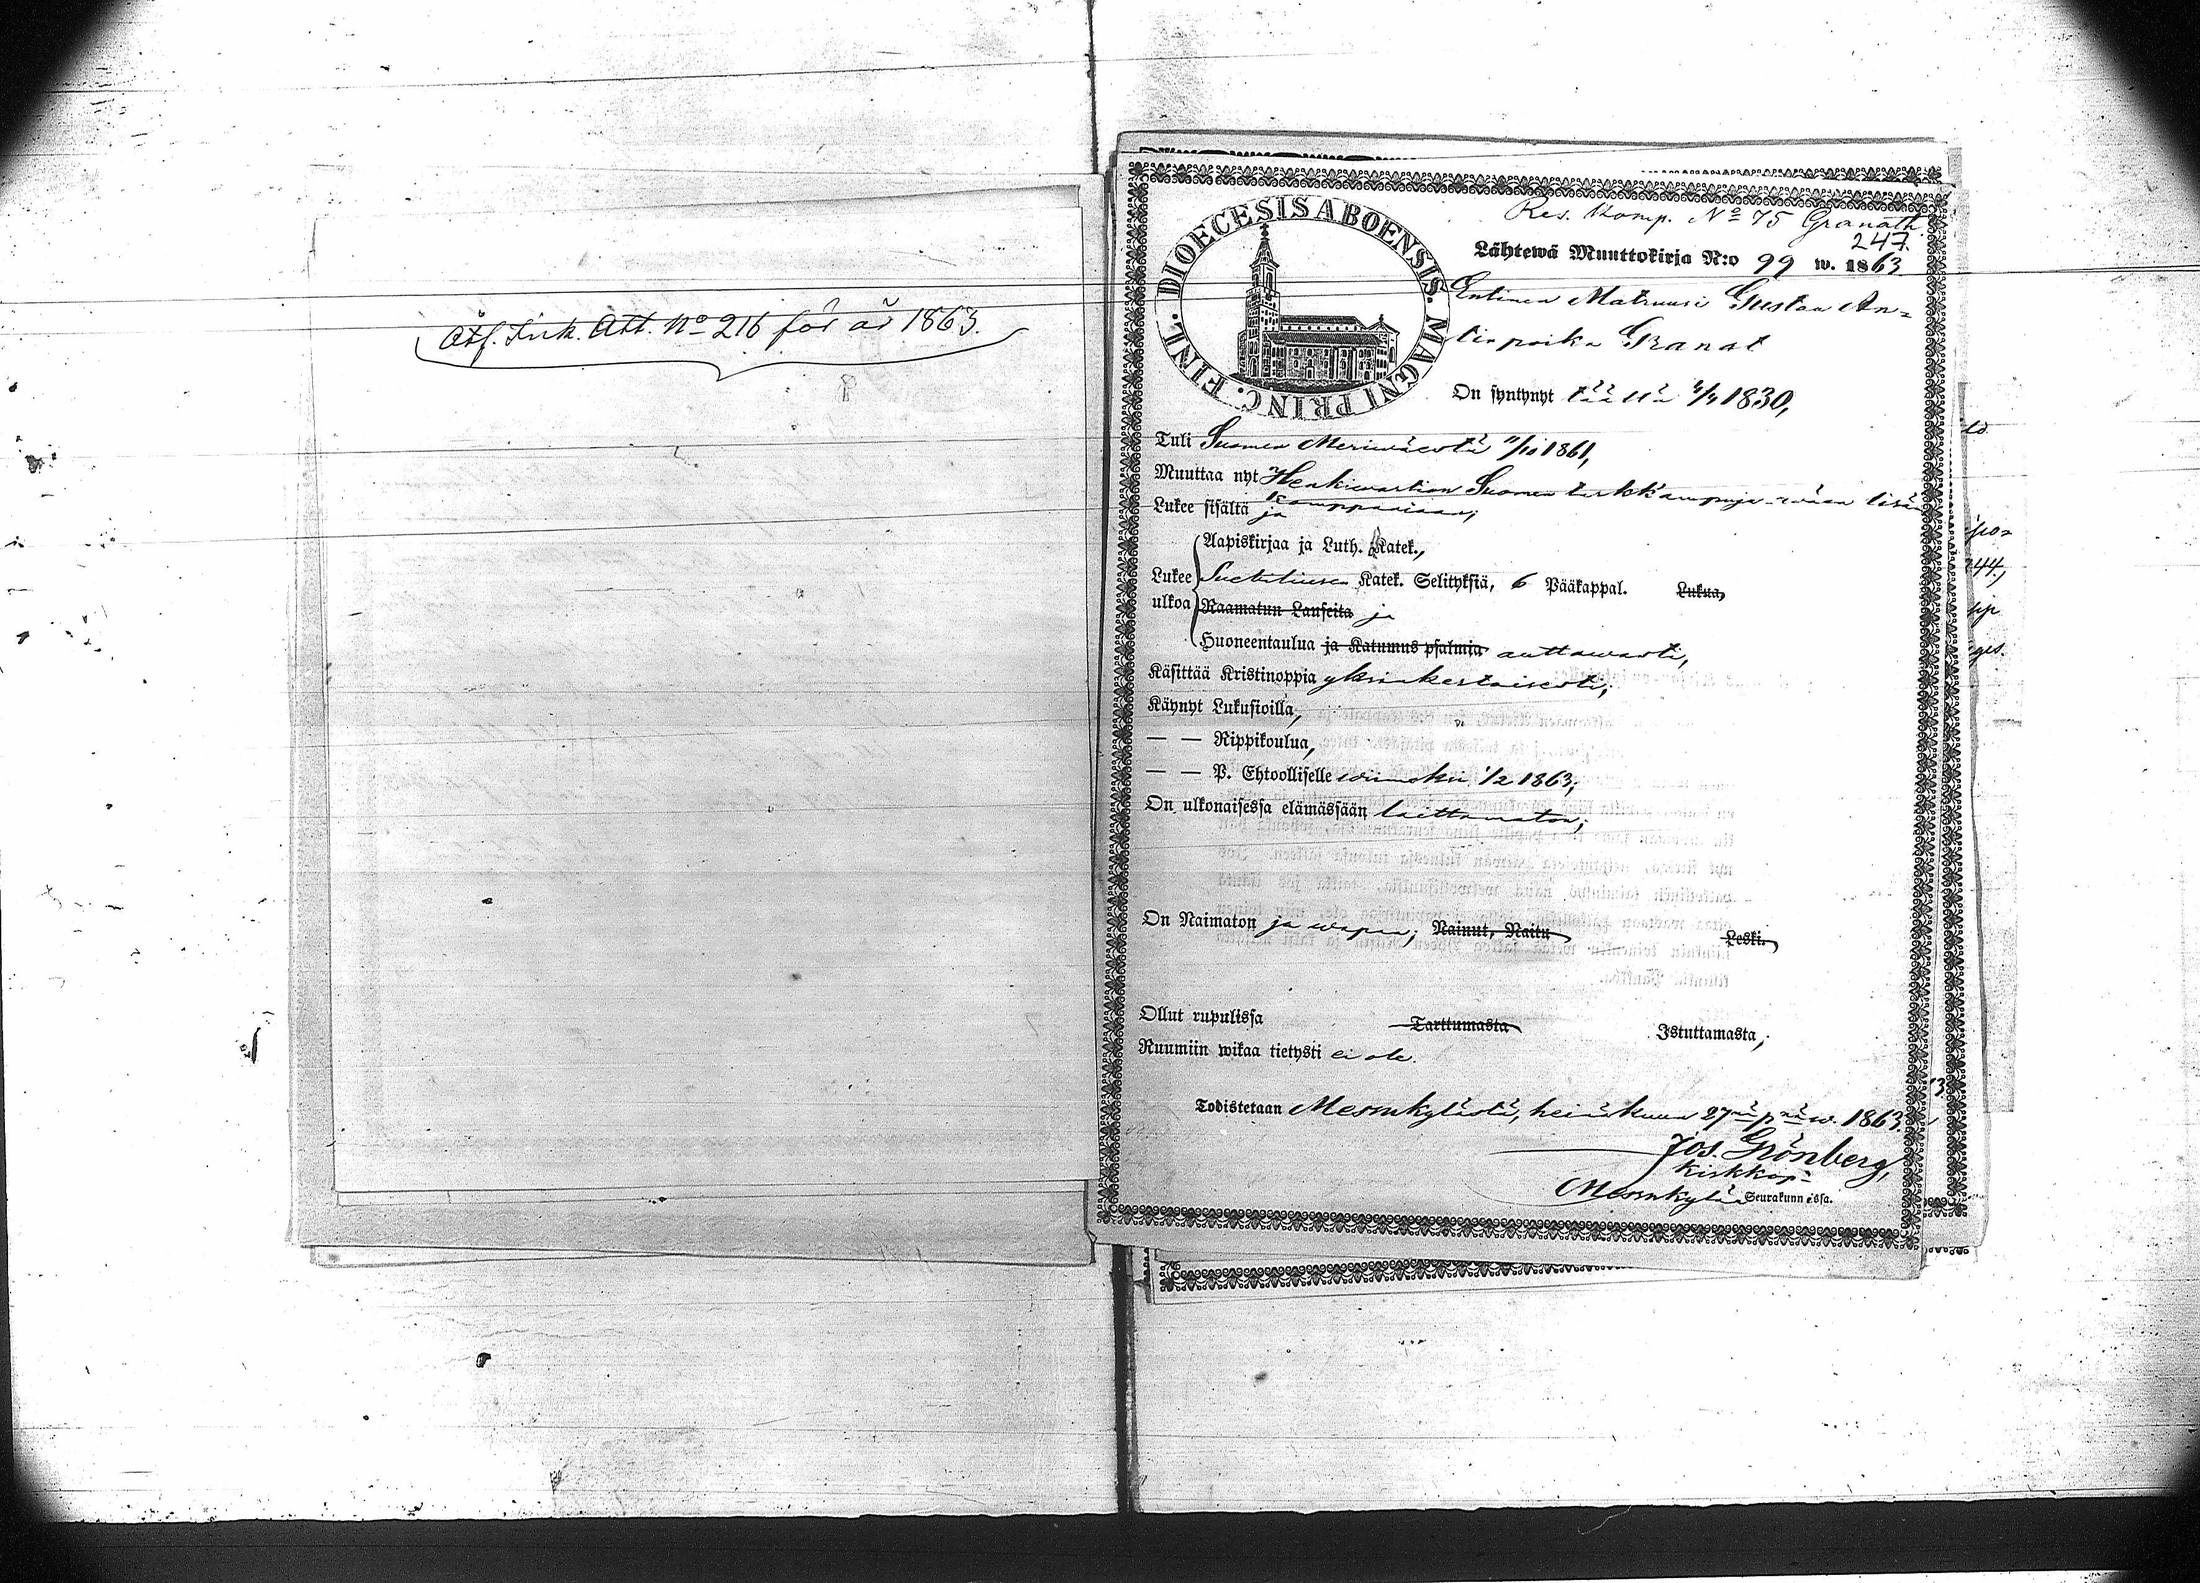 Utf. Fink. Att. No 216 för år 1863.
DIOECESIS ABOENSIS. MAGNI PRINC. FINL.
Res. Komp. No 75 Granath.
247.
Lähtewä Muuttokirja N:o 99 w. 1863
Entinen Matruusi Gustaa An=
tinpoika Granat
On syntynyt täällä 4/4 1830,
Tuli Suomen Meriwäestä 11/10 1861,
Muuttaa nyt Henkiwartion Suomen tarkk'ampuja-wäen lisä
komppaniaan;
Lukee sisältä ja
Aapiskirjaa ja Luth. Katek.,
Lukee Svebiliusen Katek. Selityksiä, 6 Pääkappal. Lukua,
ulkoa Raamatun Lauseita ja
Huoneentaulua ja Katumus psalmia auttawasti,
Käsittää Kristinoppia yksinkertaisesti;
Käynyt Lukusioilla,
— — Rippikoulua,
— — P. Ehtoolliselle wiimeksi 1/2 1863;
On ulkonaisessa elämässään laittamaton;
On Naimaton ja wapaa; Nainut, Naitu Leski.
Ollut rupulissa Tarttumasta Istuttamasta,
Ruumiin wikaa tietysti ei ole.
Todistetaan Messukylästä, heinäkuun 27nä pnä w. 1863.
Jos. Grönberg,
Kirkkoh:
Messukylän Seurakunnissa.